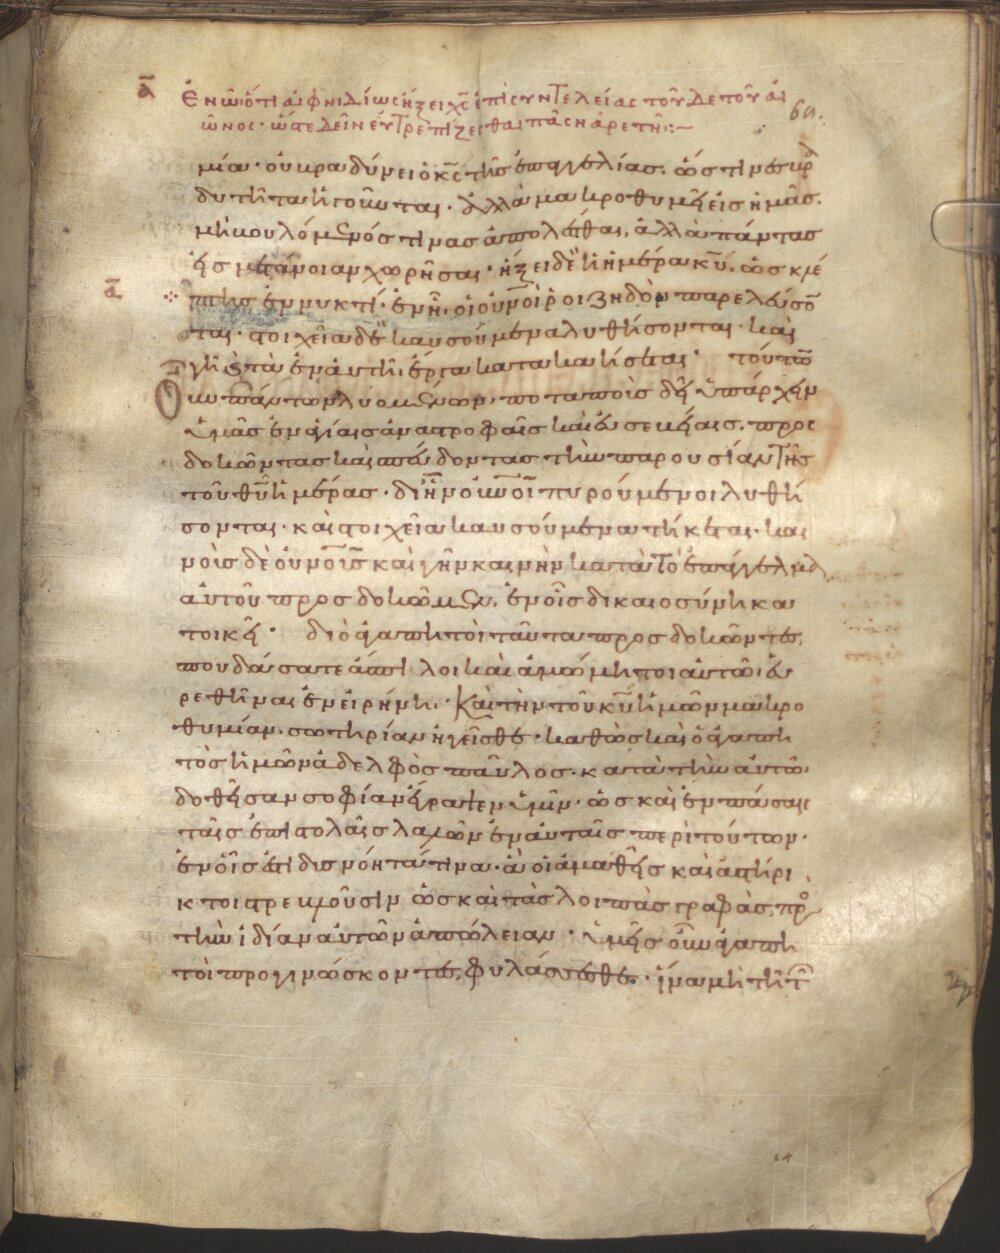 ᾱ Ἐν ὧ ὅτι αἰφνιδίως ἥξει χ̅ς ἐπὶ συντελείας τοῦδε τοῦ αἰ
ῶνος· ὥστε δεῖν εὐτρεπίζεσθαι πάση ἀρετῆ:~ 69.
μία· οὐ βραδύνει ὁ κ̅ς τῆς ἐπαγγελίας. ὥς τινες βρα
δυτῆτα ἡγοῦνται· ἀλλὰ μακροθυμεῖ εἰς ἡμᾶς.
μὴ βουλόμενός τινας ἀπολέσθαι, ἀλλὰ πάντας
εἰς μετάνοιαν χωρῆσαι· ἥξει δὲ ἡ ἡμέρα κ̅υ, ὡς κλέ
ᾱ πτης ἐν νυκτί· ἐν ἧ οἱ οὐνοὶ ροιζηδὸν παρελεύσο
ται· στοιχεῖα δὲ καυσούμενα λυθήσονται· καὶ
γῆ καὶ τὰ ἐν αὐτῆ ἔργα κατακαήσεται· τούτω
Οὖν πάντων λυομένων, ποταποὺς δεῖ ὑπάρχειν
ὑμᾶς ἐν ἁγίαις ἀναστροφαῖς καὶ εὐσεβείαις. προς
δοκῶντας καὶ σπεύδοντας τὴν παρουσίαν τῆς
τοῦ θ̅υ ἡμέρας· δι' ἣν οὐνοὶ πυρούμενοι λυθή
σονται· καὶ στοιχεῖα καυσούμενα τήκεται· και
νοὺς δὲ οὐνοὺς καὶ γῆν καινὴν κατὰ τὸ ἐπάγγελμα
αὐτοῦ προσδοκῶμεν, ἐν οἷς δικαιοσύνη κα
τοικεῖ· διὸ ἀγαπητοὶ ταῦτα προσδοκῶντες,
σπουδάσατε ἄσπιλοι καὶ ἀμώμητοι αὐτῶ εὑ
ρεθῆναι ἐν εἰρήνη. Καὶ τὴν τοῦ κ̅υ ἡμῶν μακρο
θυμίαν. σωτηρίαν ἡγεῖσθε· καθὼς καὶ ὁ ἀγαπη
τὸς ἡμῶν ἀδελφὸς παῦλος. κατὰ τὴν αὐτῶ
δοθεῖσαν σοφίαν ἔγραψεν ὑμῖν· ὡς καὶ ἐν πάσαις
ταῖς ἐπιστολαῖς λαλῶν ἐν αὐταῖς περὶ τούτων·
ἐν οἷς ἐστι δυσνόητά τινα· ἃ οἱ ἀμαθεῖς καὶ ἀστήρι
κτοι στρεβλοῦσιν ὡς καὶ τὰς λοιπὰς γραφὰς, προς
τὴν ἰδίαν αὐτῶν ἀπώλειαν· ὑμεῖς οὖν ἀγαπη
τοὶ προγινώσκοντες, φυλάσσεσθε. ἵνα μὴ τῆ τ